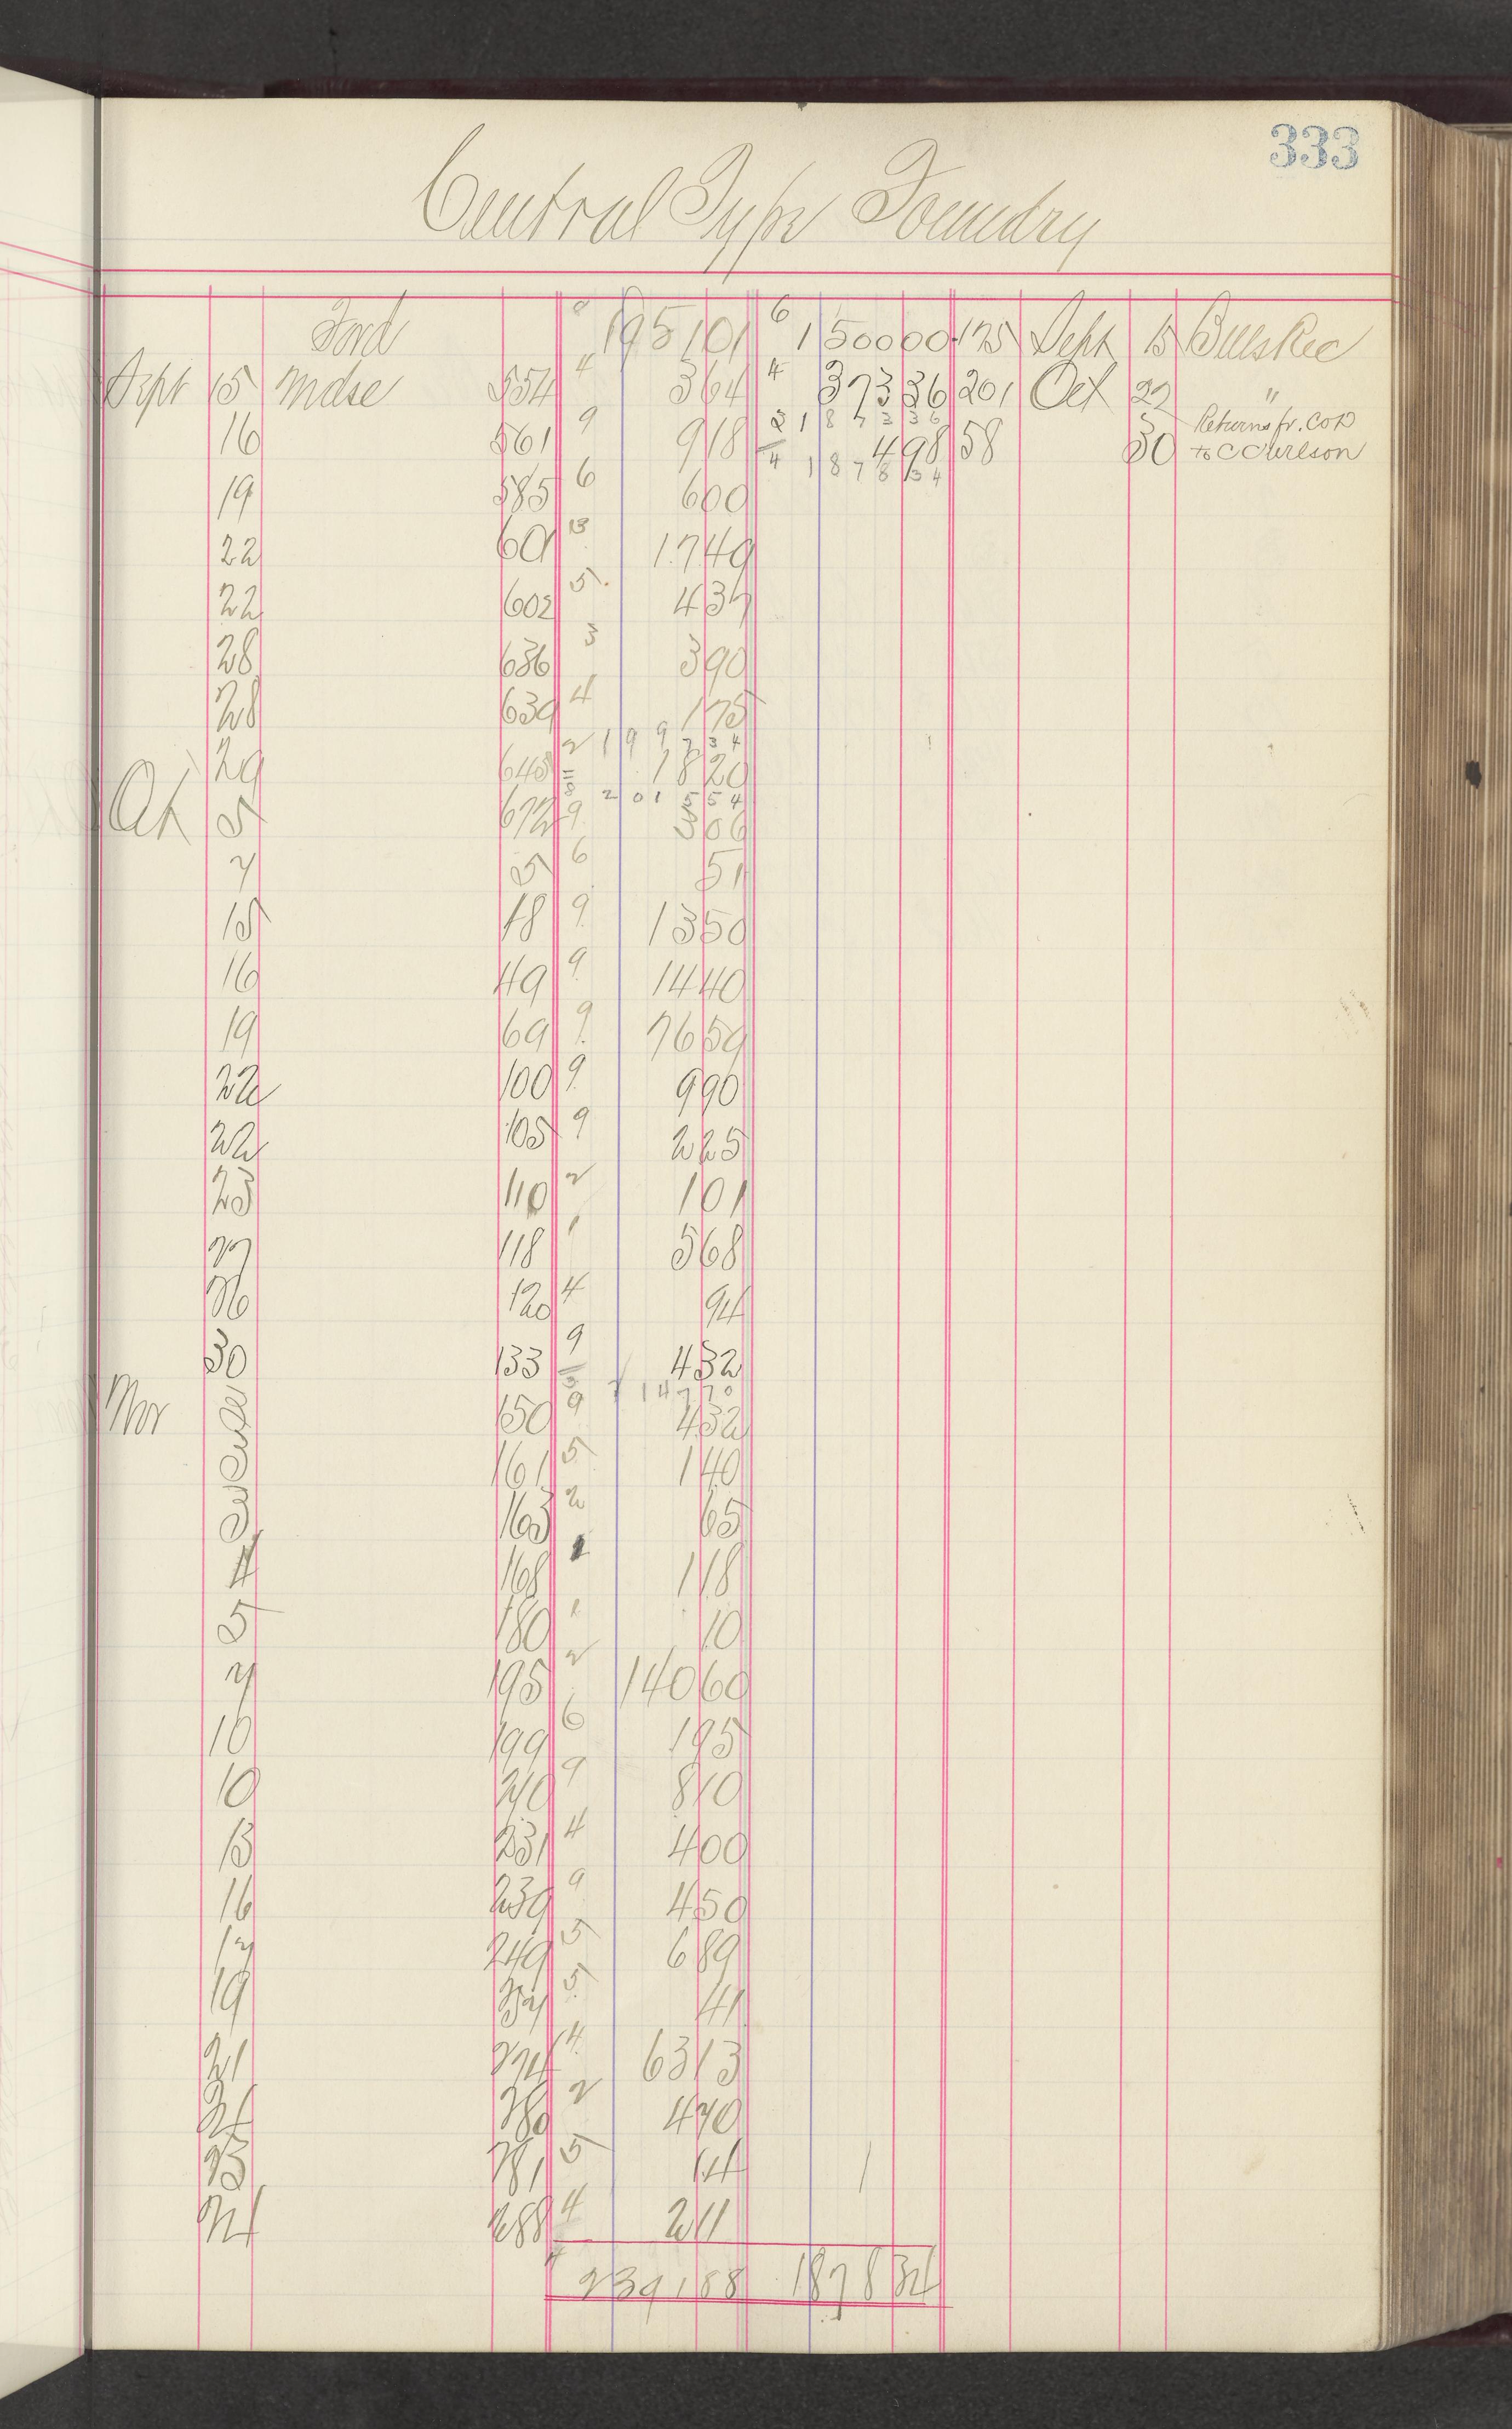 333
Central Type Foundry
Ford 195101 6 150000 175 Sept 15 Bills Rec
Sept 15 Mdse 554 4 364 4 37336 201 Oct 22 "
16 561 9 918 2 187336 498 58 30 Returns fr. Con to C Curlson
4 187834
19 585 6 600
22 601 13 1749
22 602 5 437
28 636 3 390
28 639 4 175
2 199734
29 645 1820
8 201554
Oct 5 672 9 306
7 5 6 51
15 48 9 1350
16 49 9 1440
19 69 9 7659
22 100 9 990
22 105 9 225
23 110 2 101
27 118 1 568
26 120 4 94
30 133 9 432
Nov 2 150 9 432
161 5 140
163 2 65
4 168 1 118
5 180 1 10
7 195 2 14060
10 199 6 195
10 210 9 810
13 231 4 400
16 239 9 450
17 249 5 689
19 5 41
21 274 4 6313
21 280 2 470
23 281 5 14
24 288 4 211
239188 187834